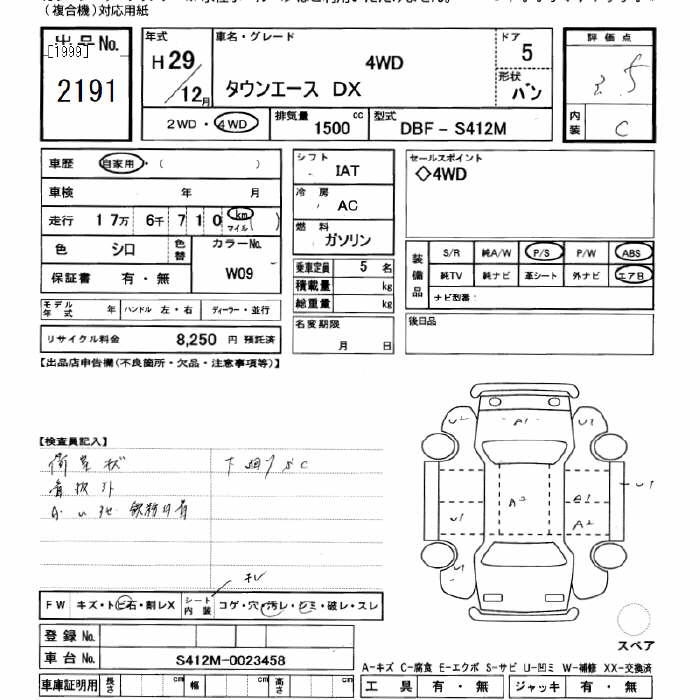 （複合機）対応用紙
出品No.
[1999]
2191
年式
H29
12月
車名・グレード
4WD
タウンエース DX
ドア
5
形状
バン
評価点
3.5
内装
C
2WD・4WD
排気量
1500 cc
型式
DBF - S412M
車歴 自家用・( )
車検 年 月
走行 17万 6千 710 km マイル ( )
色 シロ 色替
カラーNo.
W09
保証書 有・無
モデル年式 年 ハンドル 左・右 ディーラー・並行
リサイクル料金 8,250 円 預託済
シフト IAT
冷房 AC
燃料 ガソリン
乗車定員 5 名
積載量 kg
総重量 kg
名変期限
月 日
セールスポイント
◇4WD
装備品
S/R 純A/W P/S P/W ABS
純TV 純ナビ 革シート 外ナビ エアB
ナビ型番:
後日品
【出品店申告欄(不良箇所・欠品・注意事項等)】
【検査員記入】
看板外
下廻りSC
A1
U1
A2
FW キズ・トビ石・割レX シート内装 コゲ・穴・汚レ・シミ・破レ・スレ
キレ
登録No.
車台No. S412M-0023458
車庫証明用 長さ cm 幅 cm 高さ cm
スペア
A-キズ C-腐食 E-エクボ S-サビ U-凹ミ W-補修 XX-交換済
工具 有・無 ジャッキ 有・無